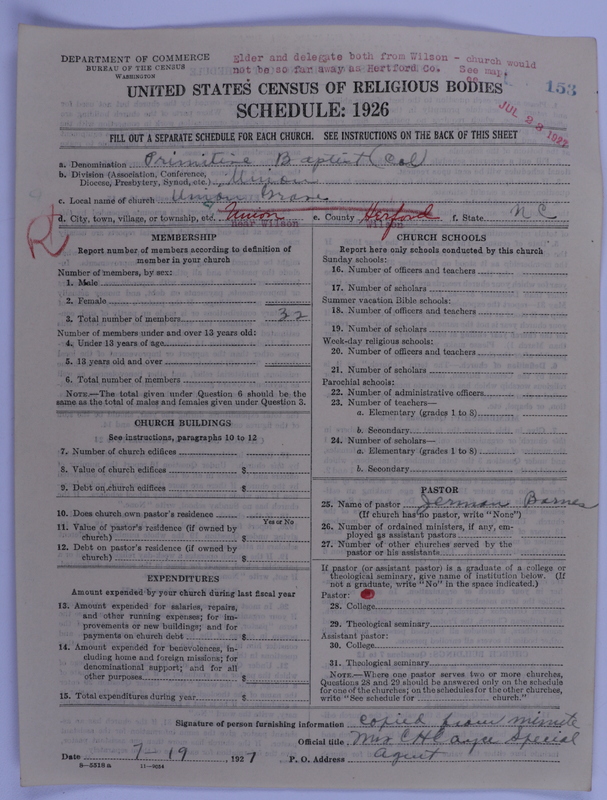 DEPARTMENT OF COMMERCE
BUREAU OF THE CENSUS
WASHINGTON
Elder and delegate both from Wilson - church would
not be so far away as Hertford Co. See map
153
UNITED STATES CENSUS OF RELIGIOUS BODIES
SCHEDULE: 1926
JUL 23 1927
FILL OUT A SEPARATE SCHEDULE FOR EACH CHURCH. SEE INSTRUCTIONS ON THE BACK OF THIS SHEET
a. Denomination Primitive Baptist (Col)
b. Division (Association, Conference,
Diocese, Presbytery, Synod, etc.) Union
c. Local name of church Union Grove
d. City, town, village, or township, etc. Union e. County Herford f. State N C
near Wilson Wilson
R
MEMBERSHIP
Report number of members according to definition of
member in your church
Number of members, by sex:
1. Male
2. Female
3. Total number of members 32
Number of members under and over 13 years old:
4. Under 13 years of age
5. 13 years old and over
6. Total number of members
NOTE.—The total given under Question 6 should be the
same as the total of males and females given under Question 3.
CHURCH BUILDINGS
See instructions, paragraphs 10 to 12
7. Number of church edifices
8. Value of church edifices $
9. Debt on church edifices $
10. Does church own pastor's residence
Yes or No
11. Value of pastor's residence (if owned by
church) $
12. Debt on pastor's residence (if owned by
church) $
EXPENDITURES
Amount expended by your church during last fiscal year
13. Amount expended for salaries, repairs,
and other running expenses; for im-
provements or new buildings; and for
payments on church debt $
14. Amount expended for benevolences, in-
cluding home and foreign missions; for
denominational support; and for all
other purposes $
15. Total expenditures during year $
CHURCH SCHOOLS
Report here only schools conducted by this church
Sunday schools:
16. Number of officers and teachers
17. Number of scholars
Summer vacation Bible schools:
18. Number of officers and teachers
19. Number of scholars
Week-day religious schools:
20. Number of officers and teachers
21. Number of scholars
Parochial schools:
22. Number of administrative officers
23. Number of teachers—
a. Elementary (grades 1 to 8)
b. Secondary
24. Number of scholars—
a. Elementary (grades 1 to 8)
b. Secondary
PASTOR
25. Name of pastor Jerman Barnes
(If church has no pastor, write "None")
26. Number of ordained ministers, if any, em-
ployed as assistant pastors
27. Number of other churches served by the
pastor or his assistants
If pastor (or assistant pastor) is a graduate of a college or
theological seminary, give name of institution below. (If
not a graduate, write "No" in the space indicated.)
Pastor:
28. College
29. Theological seminary
Assistant pastor:
30. College
31. Theological seminary
NOTE.—Where one pastor serves two or more churches,
Questions 28 and 29 should be answered only on the schedule
for one of the churches; on the schedules for the other churches,
write "See schedule for church."
Signature of person furnishing information copied from minute
Official title Mrs C H Cayce Special
Date 7-19, 1927 P. O. Address Agent
8—5518 a 11—9054